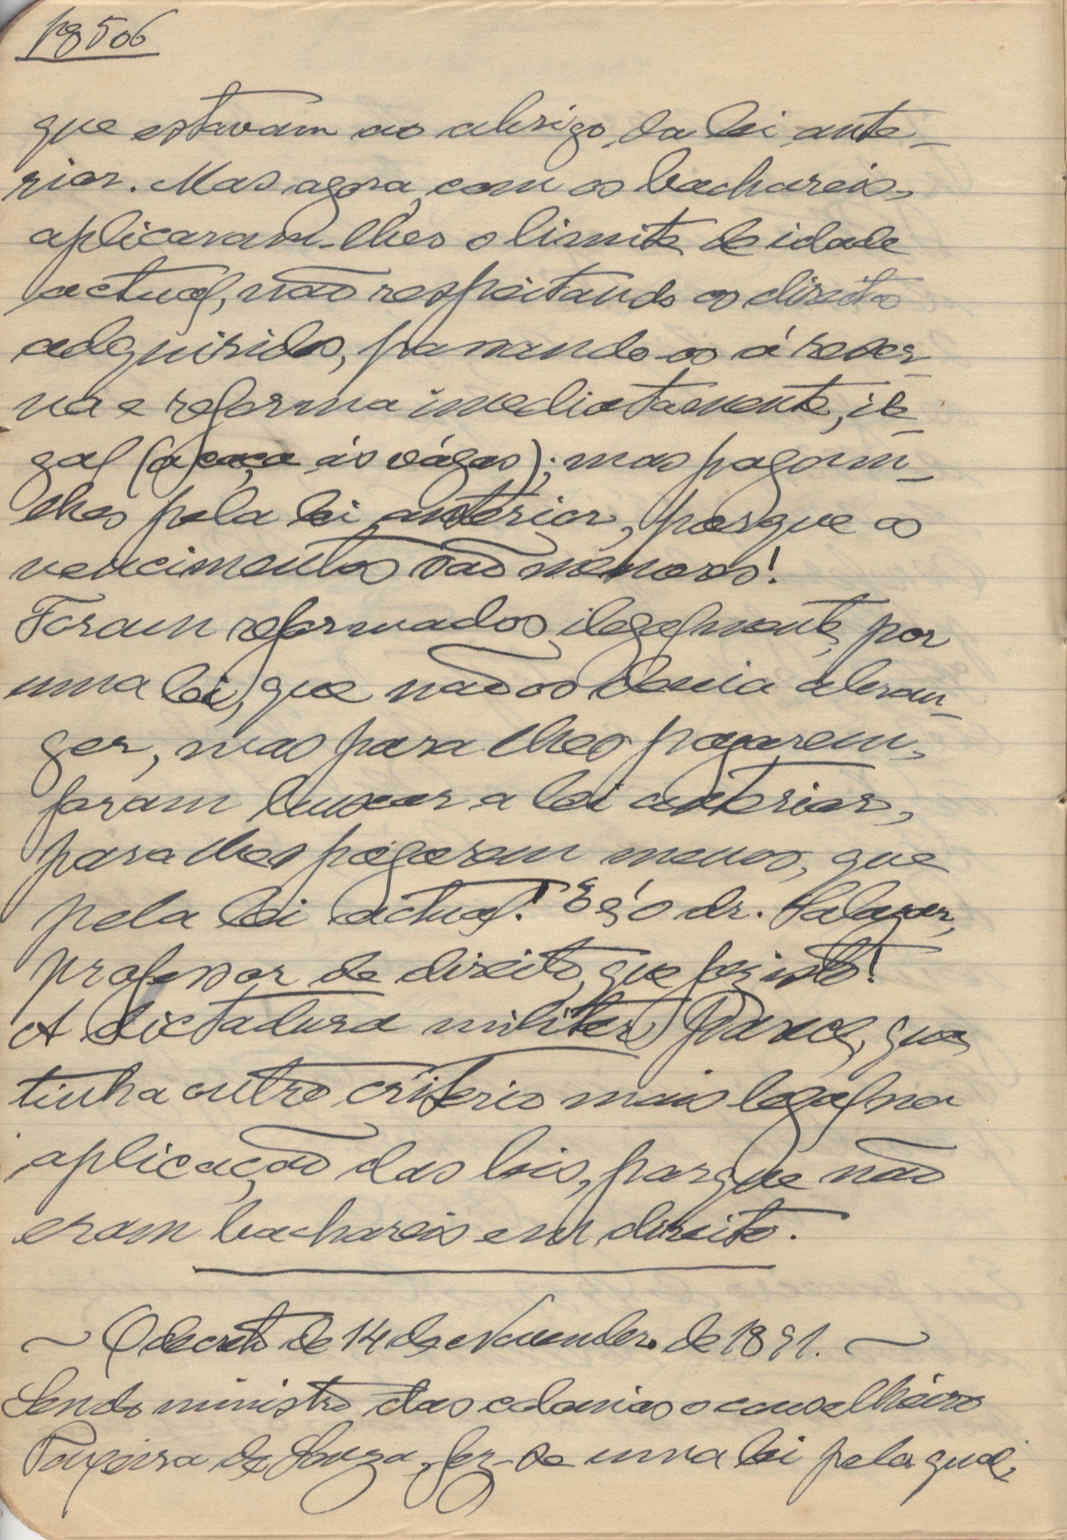 pg 506
que estavam ao abrigo da lei ante-
rior. Mas agora, com os bachareis,
aplicaram-lhes o limite de idade
actual, não respeitando os direitos
adquiridos, passando-os á reser-
va e reforma imediatamente, ile-
gal (a caça ás vágas); mas pagam-
lhes pela lei anterior, porque os
vencimentos são menores!
Foram reformados ilegalmente, por
uma lei, que não os devia abran-
ger, mas para lhes pagarem,
foram buscar a lei anterior,
para lhes pagarem menos, que
pela lei actual! E é o dr. Salazar,
professor de direito, que fez isto!
A dictadura militar, parece, que
tinha outro criterio mais legal na
aplicação das leis, porque não
eram bachareis em direito.
~ O decreto de 14 de Novembro de 1891. ~
Sendo ministro das colonias o conselheiro
Teixeira de Souza, fez-se uma lei pela qual,